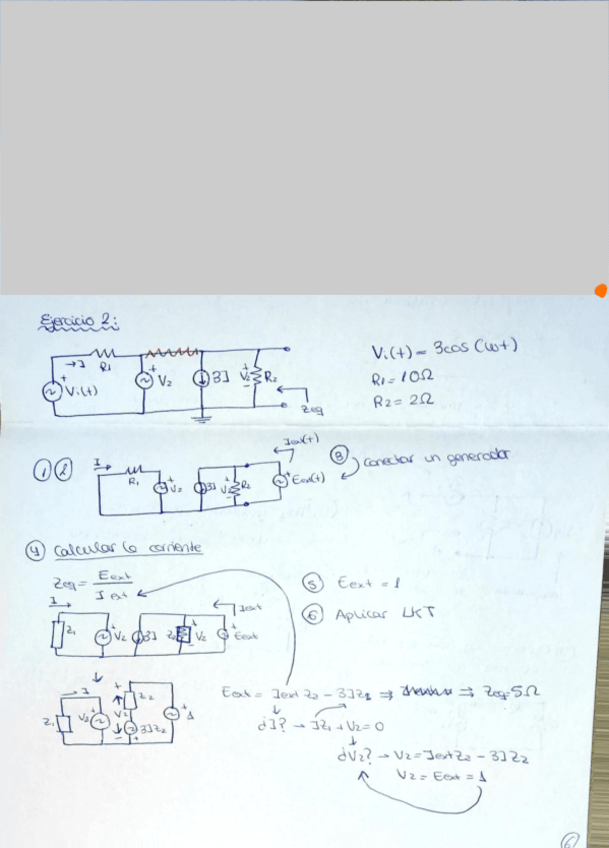 Ejercicio 2:
→ I
R1
Vi(t)
V2
3I
V2
R2
Zeq
Vi(t) = 3cos(ωt)
R1 = 10Ω
R2 = 2Ω
① ②
I
R1
V2
3I
V2
R2
Iext(t)
Eext(t)
③ conectar un generador
④ Calcular la corriente
Zeq = Eext / Iext
I
Z1
V2
3I
Z2
V2
Iext
Eext
⑤ Eext = 1
⑥ Aplicar LKT
I
Z1
V2
V2
Z2
3IZ2
1
Eext = Iext Z2 - 3IZ2 ⇒ ⇒ Zeq = 5Ω
¿I? → IZ1 + V2 = 0
¿V2? → V2 = Iext Z2 - 3IZ2
V2 = Eext = 1
6